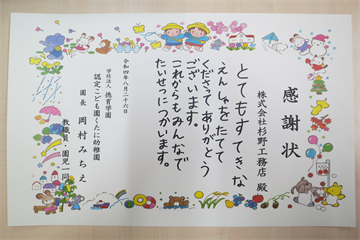 感謝状
株式会社杉野工務店 殿
とてもすてきな
えんしゃをたてて
くださってありがとう
ございます。
これからもみんなで
たいせつにつかいます。
令和四年八月二十六日
学校法人 徳育学園
認定こども園くたに幼稚園
園長 岡村みちえ
教職員・園児一同